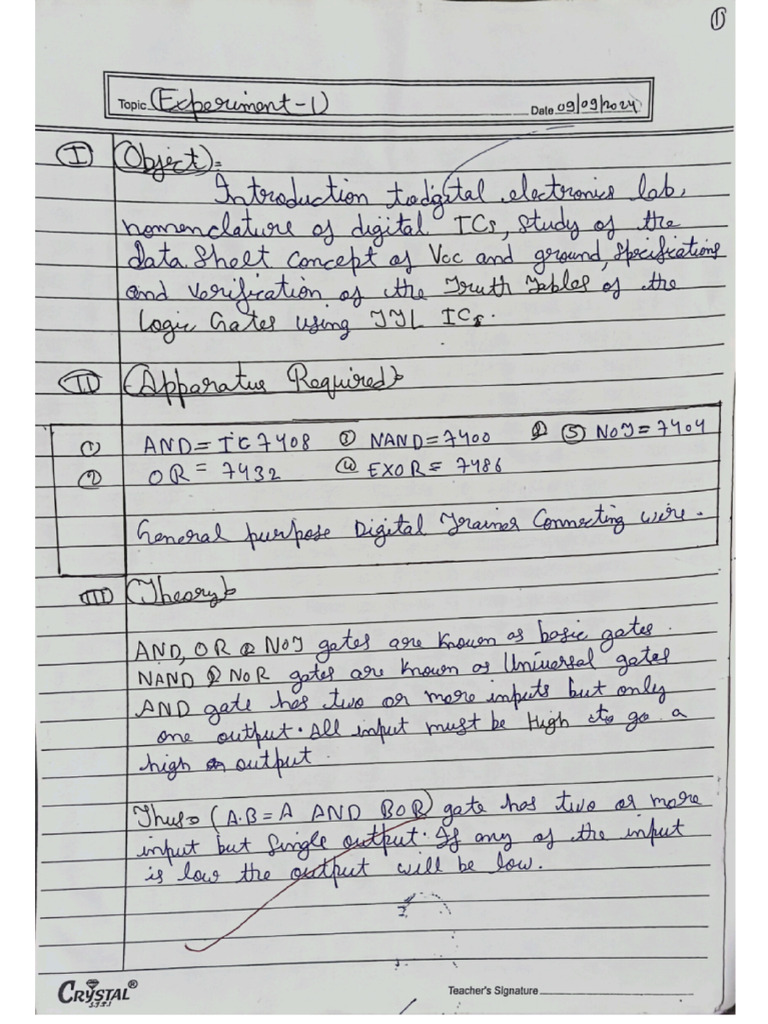 ①
Topic (Experiment-1) Date 09/09/2024
Ⅰ (Object):-
Introduction to digital electronics lab,
nomenclature of digital ICs, study of the
data sheet concept of Vcc and ground, specifications
and verification of the Truth Tables of the
Logic Gates using TTL ICs.
Ⅱ (Apparatus Required:-
① AND = IC 7408 ③ NAND = 7400 & ⑤ NOT = 7404
② OR = 7432 ④ EXOR = 7486
General purpose Digital Trainer Connecting wire.
Ⅲ (Theory:-
AND, OR & NOT gates are known as basic gates.
NAND & NOR gates are known as Universal gates
AND gate has two or more inputs but only
one output. All input must be High to go a
high output.
Thus:- (A.B = A AND B OR) gate has two or more
input but Single output. If any of the input
is low the output will be low.
CRYSTAL®
Teacher's Signature